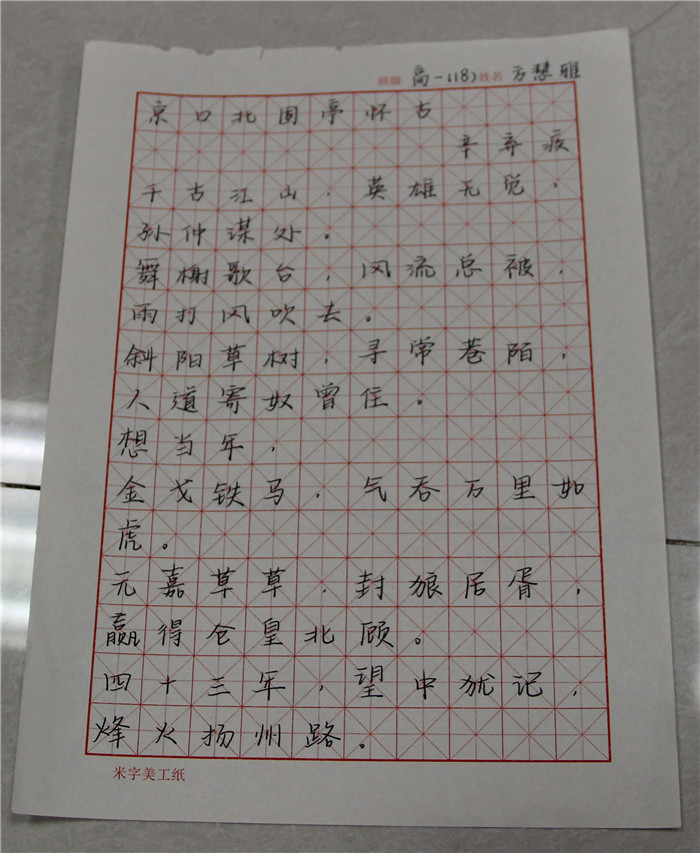 班级 高一(18) 姓名 方慧雅
京口北固亭怀古
辛弃疾
千古江山，英雄无觅，
孙仲谋处。
舞榭歌台，风流总被，
雨打风吹去。
斜阳草树，寻常巷陌，
人道寄奴曾住。
想当年，
金戈铁马，气吞万里如
虎。
元嘉草草，封狼居胥，
赢得仓皇北顾。
四十三年，望中犹记，
烽火扬州路。
米字美工纸